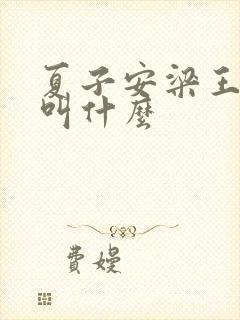 夏子安梁王
叫什麼
費嫚